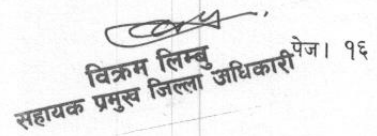 विक्रम लिम्बु
सहायक प्रमुख जिल्ला अधिकारी
पेज। १६